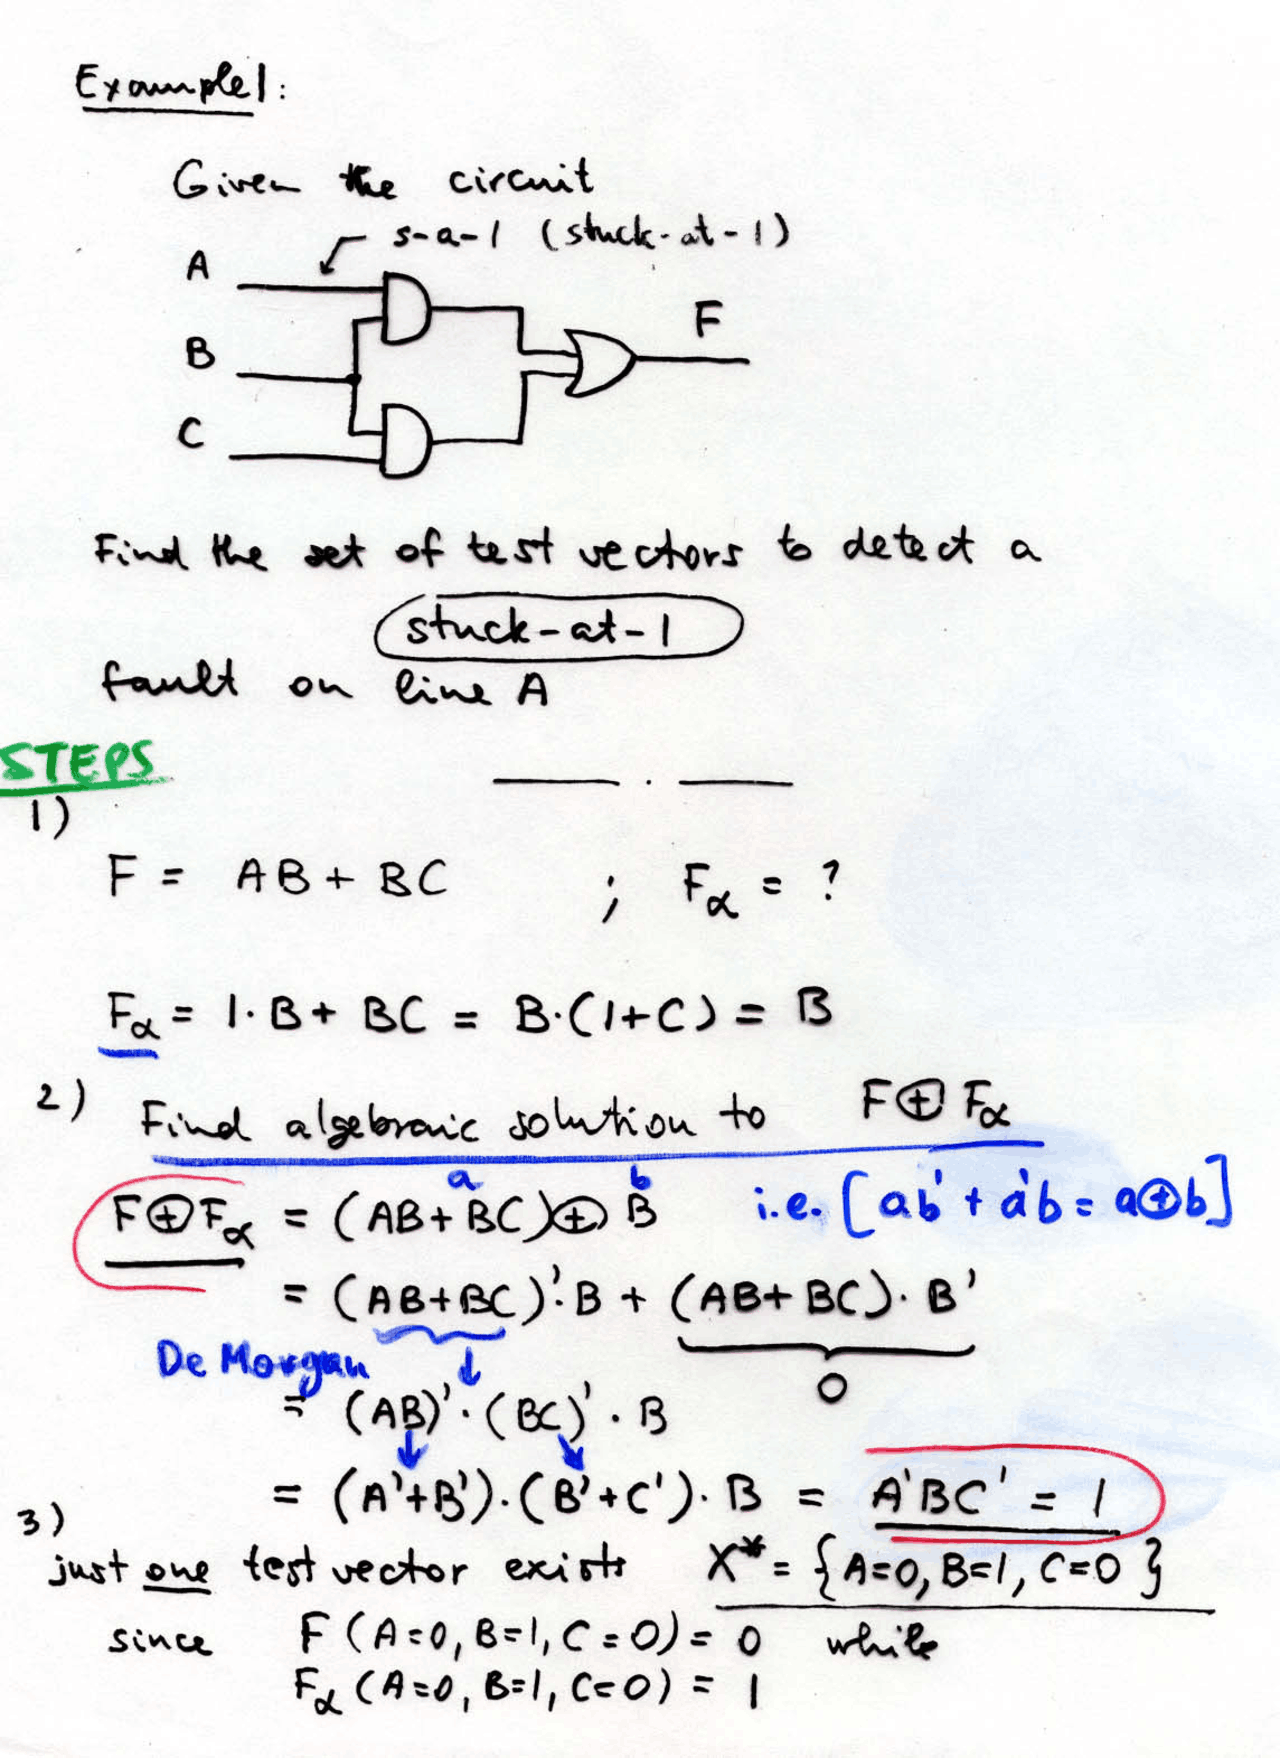 Example 1:
Given the circuit
s-a-1 (stuck-at-1)
A
F
B
C
Find the set of test vectors to detect a
stuck-at-1
fault on line A
STEPS
1)
F = AB + BC ; Fα = ?
Fα = 1·B + BC = B·(1+C) = B
2) Find algebraic solution to F⊕Fα
a b
F⊕Fα = (AB+BC)⊕B i.e. [ab' + a'b = a⊕b]
= (AB+BC)'·B + (AB+BC)·B'
De Morgan 0
= (AB)'·(BC)'·B
= (A'+B')·(B'+C')·B = A'BC' = 1
3)
just one test vector exists X* = {A=0, B=1, C=0}
since F(A=0, B=1, C=0) = 0 while
Fα(A=0, B=1, C=0) = 1